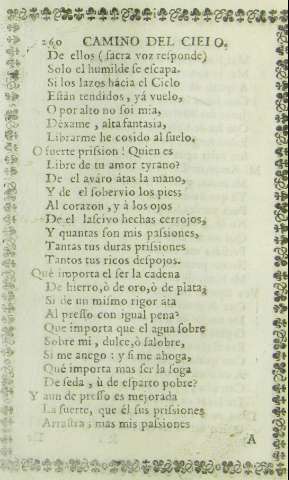 260 CAMINO DEL CIELO.
De ellos (sacra voz responde)
Solo el humilde se escapa.
Si los lazos hacia el Cielo
Están tendidos, yá vuelo,
O por alto no soi mia,
Dexame, alta fantasia,
Librarme he cosido al suelo.
O fuerte prission! Quien es
Libre de tu amor tyrano?
De el aváro átas la mano,
Y de el sobervio los pies;
Al corazon, y à los ojos
De el lascivo hechas cerrojos,
Y quantas son mis passiones,
Tantas tus duras prissiones
Tantos tus ricos despojos.
Què importa el ser la cadena
De hierro, ò de oro, ò de plata,
Si de un mismo rigor ata
Al presso con igual pena?
Que importa que el agua sobre
Sobre mi, dulce, ò salobre,
Si me anego: y si me ahoga,
Què importa mas ser la soga
De seda, ù de esparto pobre?
Y aun de presso es mejorada
La suerte, que èl sus prissiones
Arrastra; mas mis passiones
A